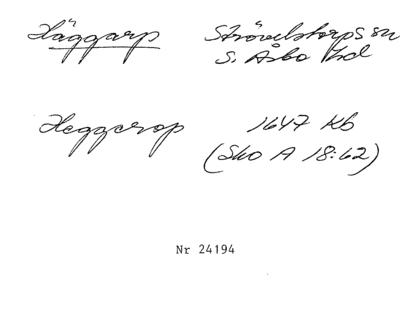 Häggarp Strövelstorps sn
S. Åsbo hd
Heggerop 1647 Kb
(Sko A 18:62)
Nr 24194